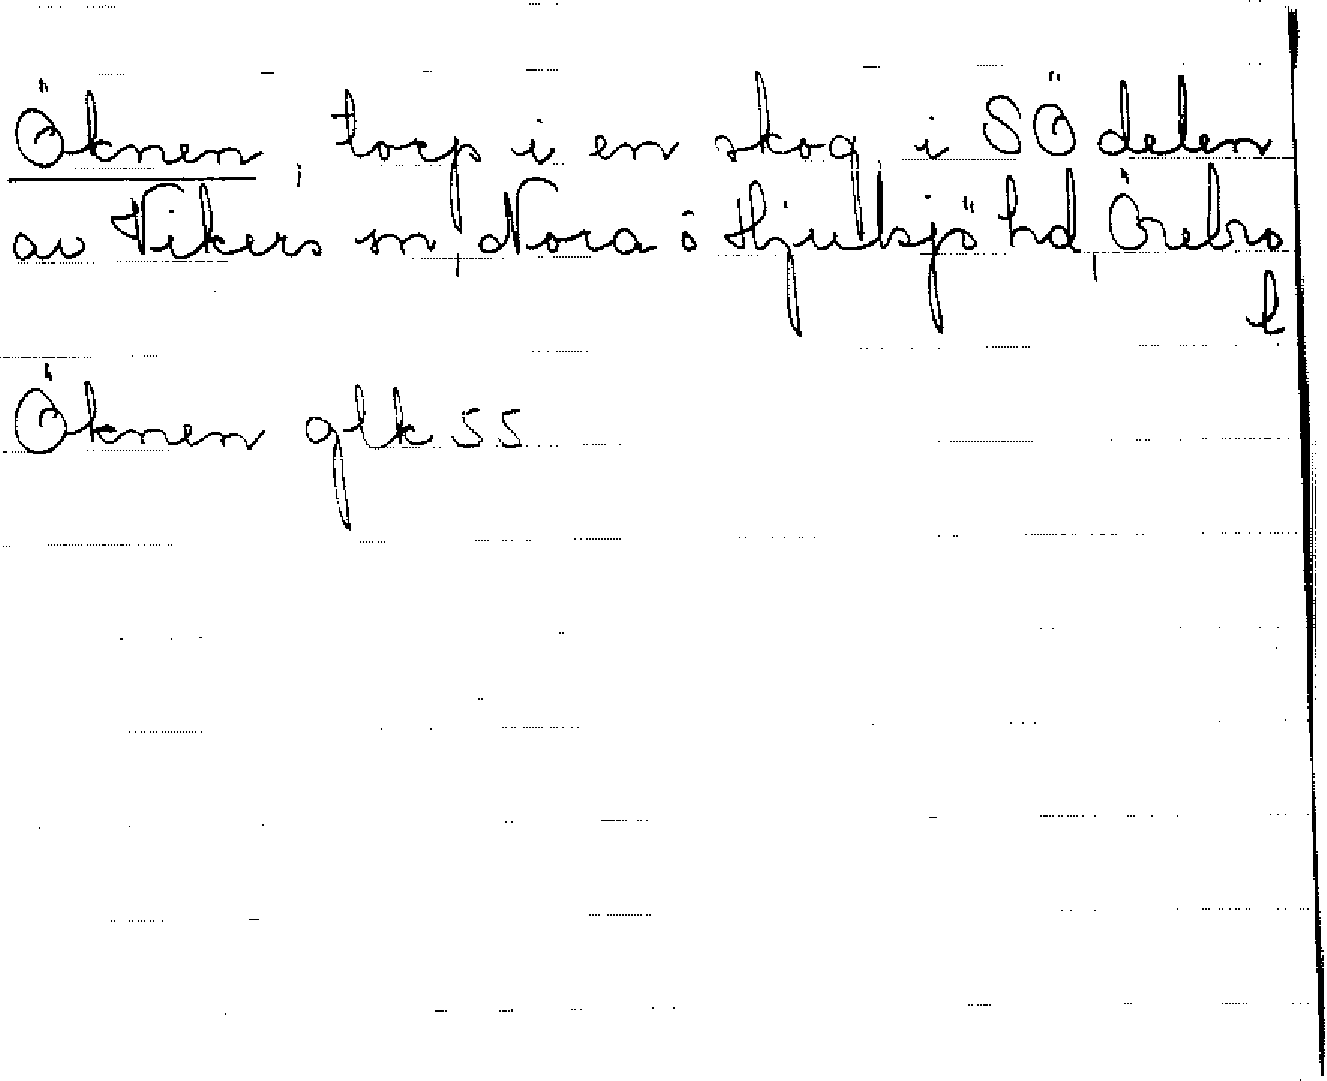 Öknen, torp i en skog i SÖ delen
av Vikers sn, Nora o Hjulsjö hd, Örebro
l
Öknen glk 55